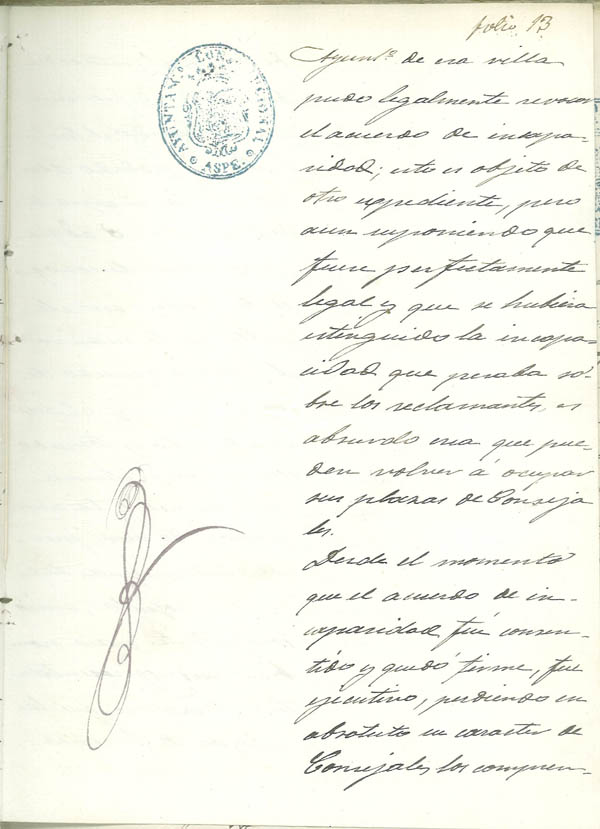 folio 13
AYUNTAM.º CONSTITUCIONAL
ASPE.
Ayunt.º de esa villa
pudo legalmente revocar
el acuerdo de incapa-
cidad; esto es objeto de
otro expediente, pero
aun suponiendo que
fuese perfectamente
legal y que se hubiera
extinguido la incapa-
cidad que pesaba so-
bre los reclamantes, es
absurdo crea que pue-
den volver á ocupar
sus plazas de Conseja
les.
Desde el momento
que el acuerdo de in-
capacidad fué consen-
tido y quedó firme, fue
ejecutivo, perdiendo en
absoluto su caracter de
Consejales los compren-